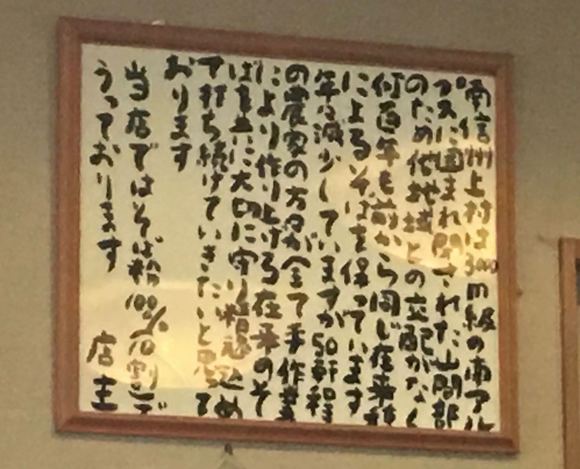 南信州上村は3000m級の南アル
プスに囲まれ閉ざされた山間部
のため他地域との交配がなく
何百年も前から同じ在来種
によるそばを保っています
年々減少していますが50軒程
の農家の方々が全て手作業
により作り上げる在来のそ
ばを共に大切に守り精魂込め
て打ち続けていきたいと思って
おります
当店ではそば粉100%10割で
うっております
店主